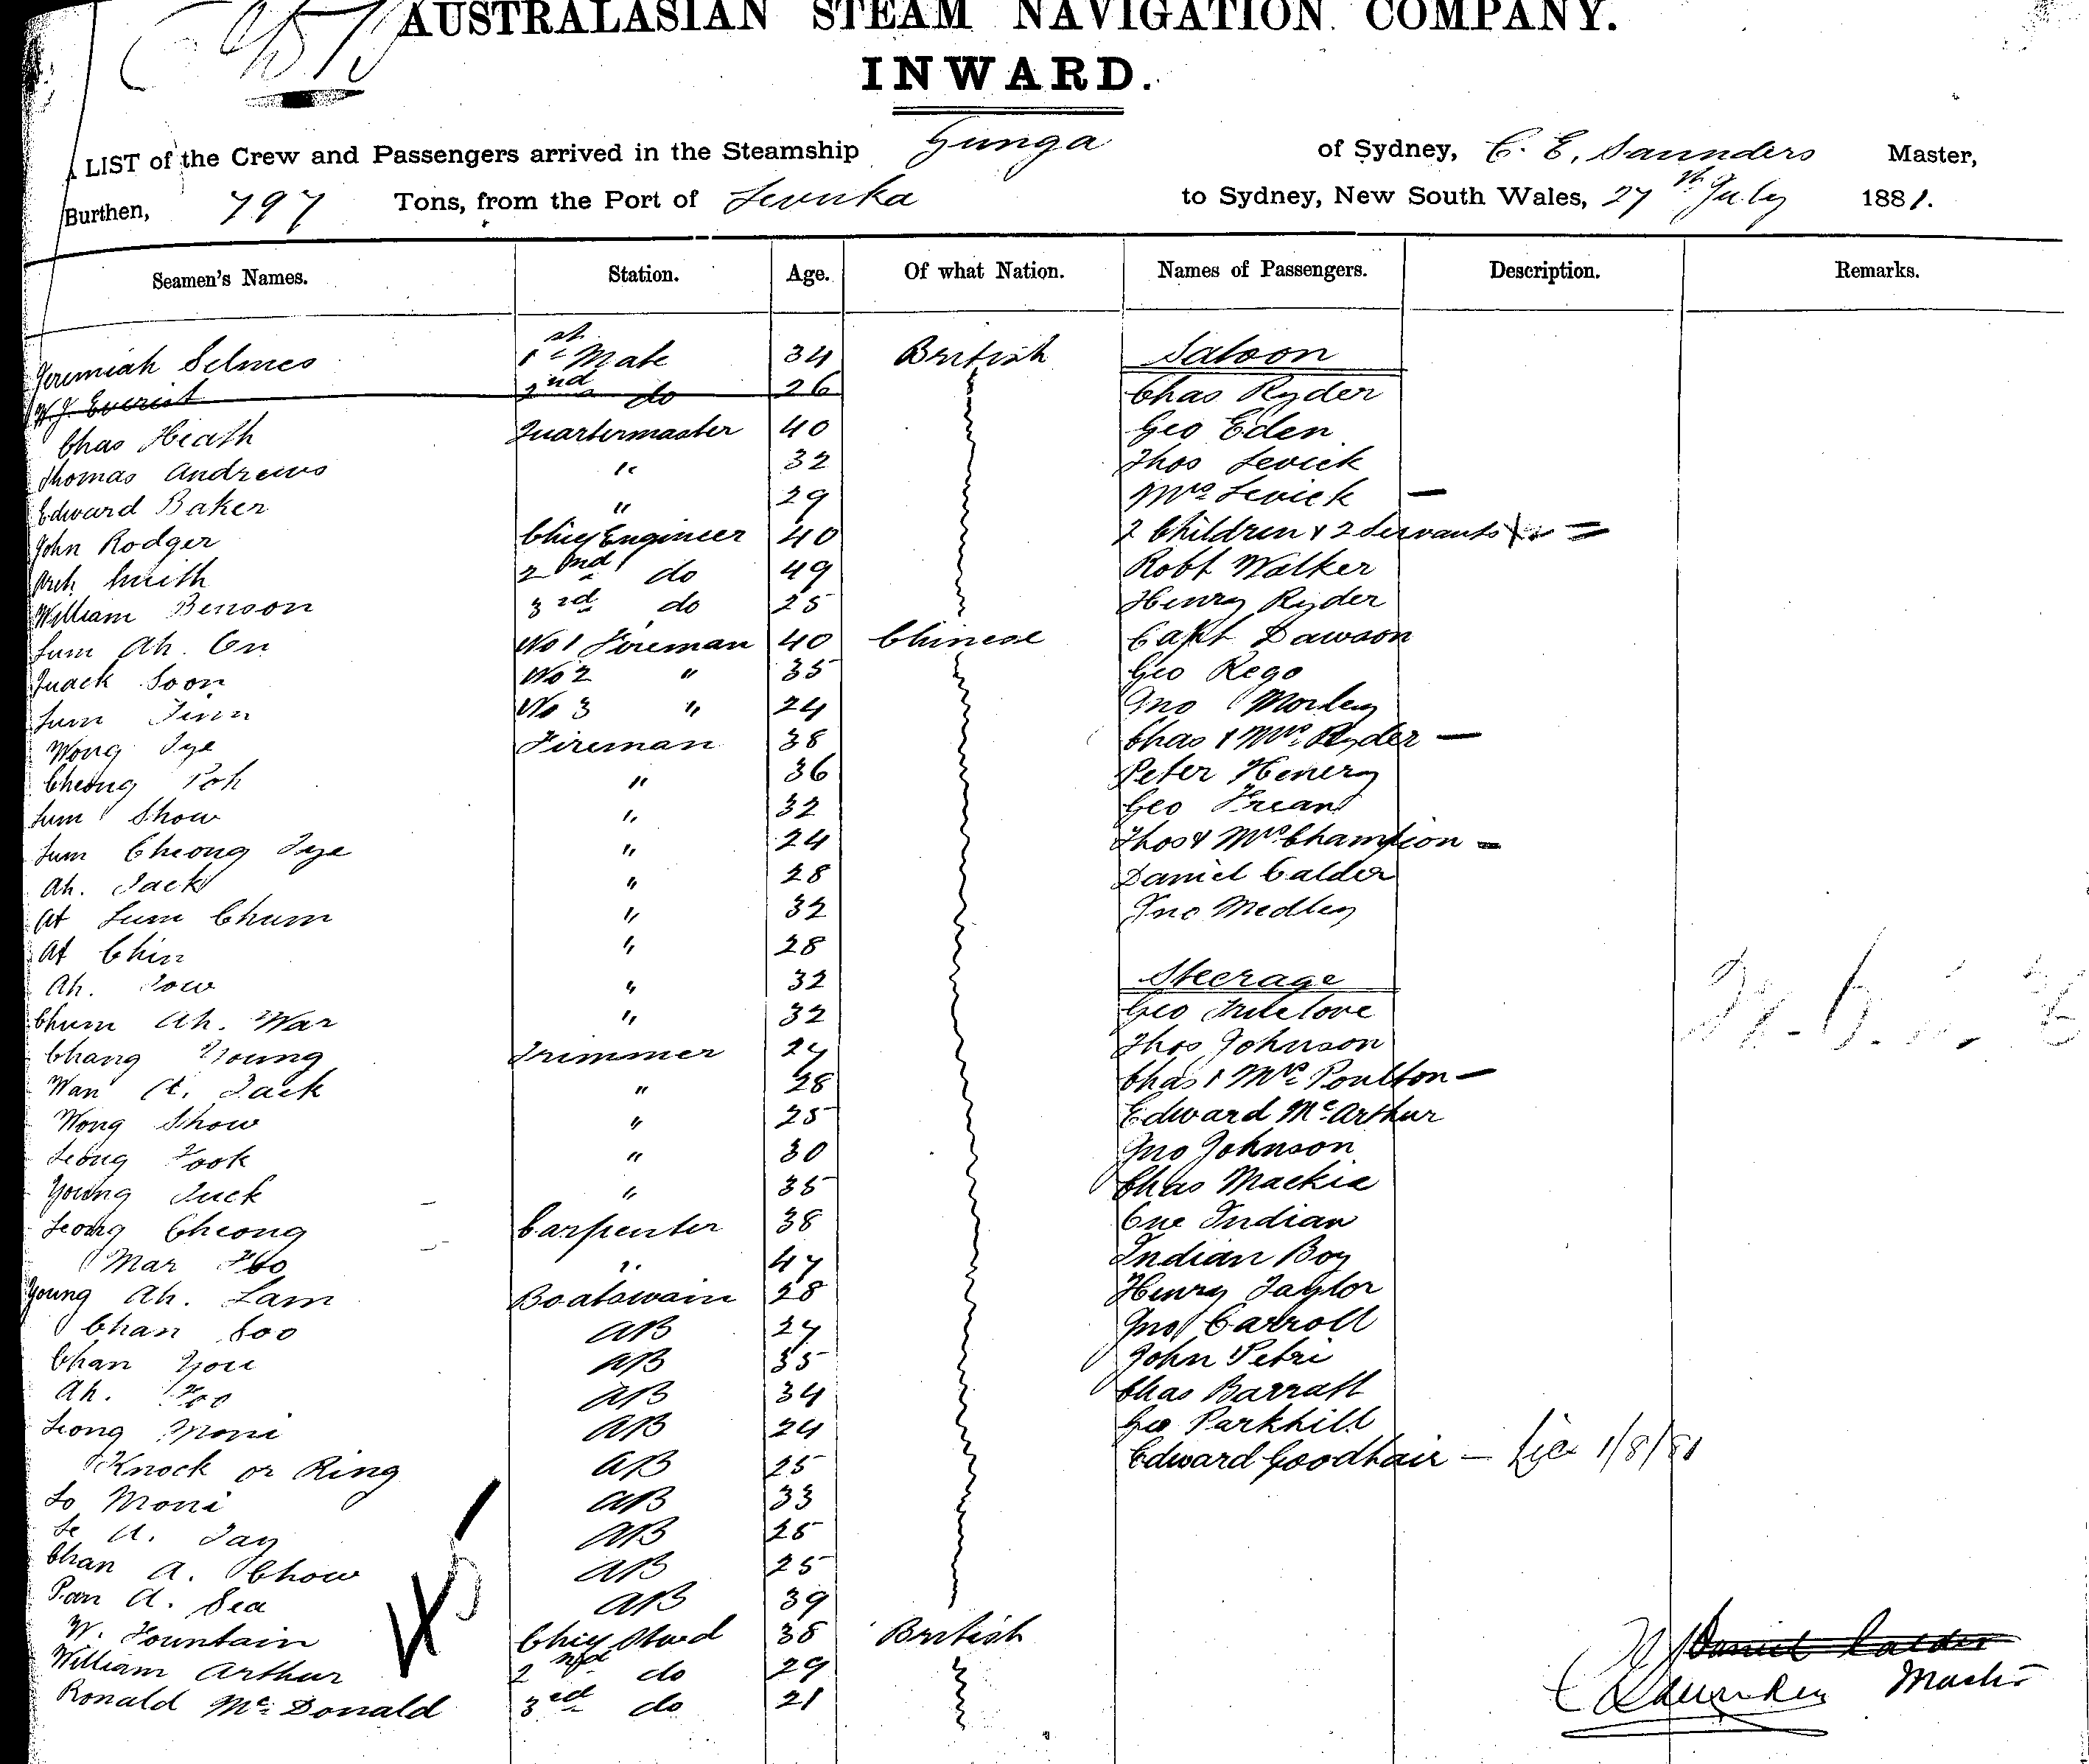 AUSTRALASIAN STEAM NAVIGATION COMPANY.
INWARD.
A LIST of the Crew and Passengers arrived in the Steamship Gunga of Sydney, C. E. Saunders Master,
Burthen, 797 Tons, from the Port of Levuka to Sydney, New South Wales, 27th July 1881.
Seamen's Names. Station. Age. Of what Nation. Names of Passengers. Description. Remarks.
Jeremiah Selmes 1st Mate 34 British Saloon
W J. Everist 2nd do 26 Chas Ryder
Chas Heath Quartermaster 40 Geo Eden
Thomas Andrews " 32 Thos Levick
Edward Baker " 29 Mrs Levick —
John Rodger Chief Engineer 40 2 Children & 2 Servants
Arch Smith 2nd do 49 Robt Walker
William Benson 3rd do 25 Henry Ryder
Lum Ah. On No 1 Fireman 40 Chinese Capt Dawson
Quack Soon No 2 " 35 Geo Rego
Lum Tinn No 3 " 24 Jno Morley
Wong Tye Fireman 38 Chas & Mrs Ryder —
Cheong Poh " 36 Peter Henery
Lum Show " 32 Geo
Lum Cheong Tye " 24 Thos & Mrs Champion —
Ah. Jack " 28 Daniel Calder
At Lum Chum " 32 Jno Medley
At Chin " 28
Ah. Tow " 32 Steerage
Chum Ah. War " 32 Geo Truelove
Chang Young Trimmer 27 Thos Johnson
Wan A. Jack " 28 Chas & Mrs Poulton —
Wong Show " 25 Edward McArthur
Leong Fook " 30 Jno Johnson
Young Tuck " 35 Chas Mackie
Leong Cheong Carpenter 38 One Indian
Mar Foo " 47 Indian Boy
Young Ah. Lam Boatswain 28 Henry Taylor
Chan Soo AB 27 Jno Carroll
Chan You AB 35 John Petri
Ah. Foo AB 34 Chas Barratt
Leong Moni AB 24 Geo Parkhill
Knock or Ring AB 25 Edward Goodhair — 1/8/81
Lo Moni AB 33
Le A. Tay AB 25
Chan A. Chow AB 25
Pan A. Sea AB 39
W. Fountain Chief Stwd 38 British
William Arthur 2nd do 29 Daniel Calder
Ronald McDonald 3rd do 21 Master